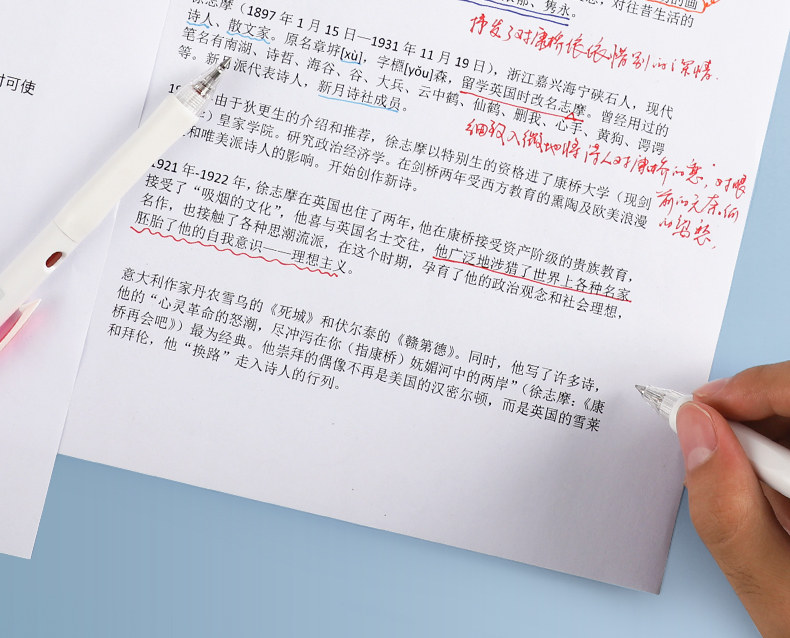 的画
郁、隽永。
，对往昔生活的
抒发了对康桥依依惜别的深情.
徐志摩（1897年1月15日—1931年11月19日），浙江嘉兴海宁硖石人，现代
诗人、散文家。原名章垿[xù]，字槱[yǒu]森，留学英国时改名志摩。曾经用过的
笔名有南湖、诗哲、海谷、谷、大兵、云中鹤、仙鹤、删我、心手、黄狗、谔谔
等。新月派代表诗人，新月诗社成员。
细致入微地将诗人对康桥的
前的
时可使
由于狄更生的介绍和推荐，徐志摩以特别生的资格进了康桥大学（现剑
）皇家学院。研究政治经济学。在剑桥两年受西方教育的熏陶及欧美浪漫
和唯美派诗人的影响。开始创作新诗。
1921年-1922年，徐志摩在英国也住了两年，他在康桥接受资产阶级的贵族教育，
接受了“吸烟的文化”，他喜与英国名士交往，他广泛地涉猎了世界上各种名家
名作，也接触了各种思潮流派，在这个时期，孕育了他的政治观念和社会理想，
胚胎了他的自我意识——理想主义。
意大利作家丹农雪乌的《死城》和伏尔泰的《赣第德》。同时，他写了许多诗，
他的“心灵革命的怒潮，尽冲泻在你（指康桥）妩媚河中的两岸”（徐志摩：《康
桥再会吧》）最为经典。他崇拜的偶像不再是美国的汉密尔顿，而是英国的雪莱
和拜伦，他“换路”走入诗人的行列。